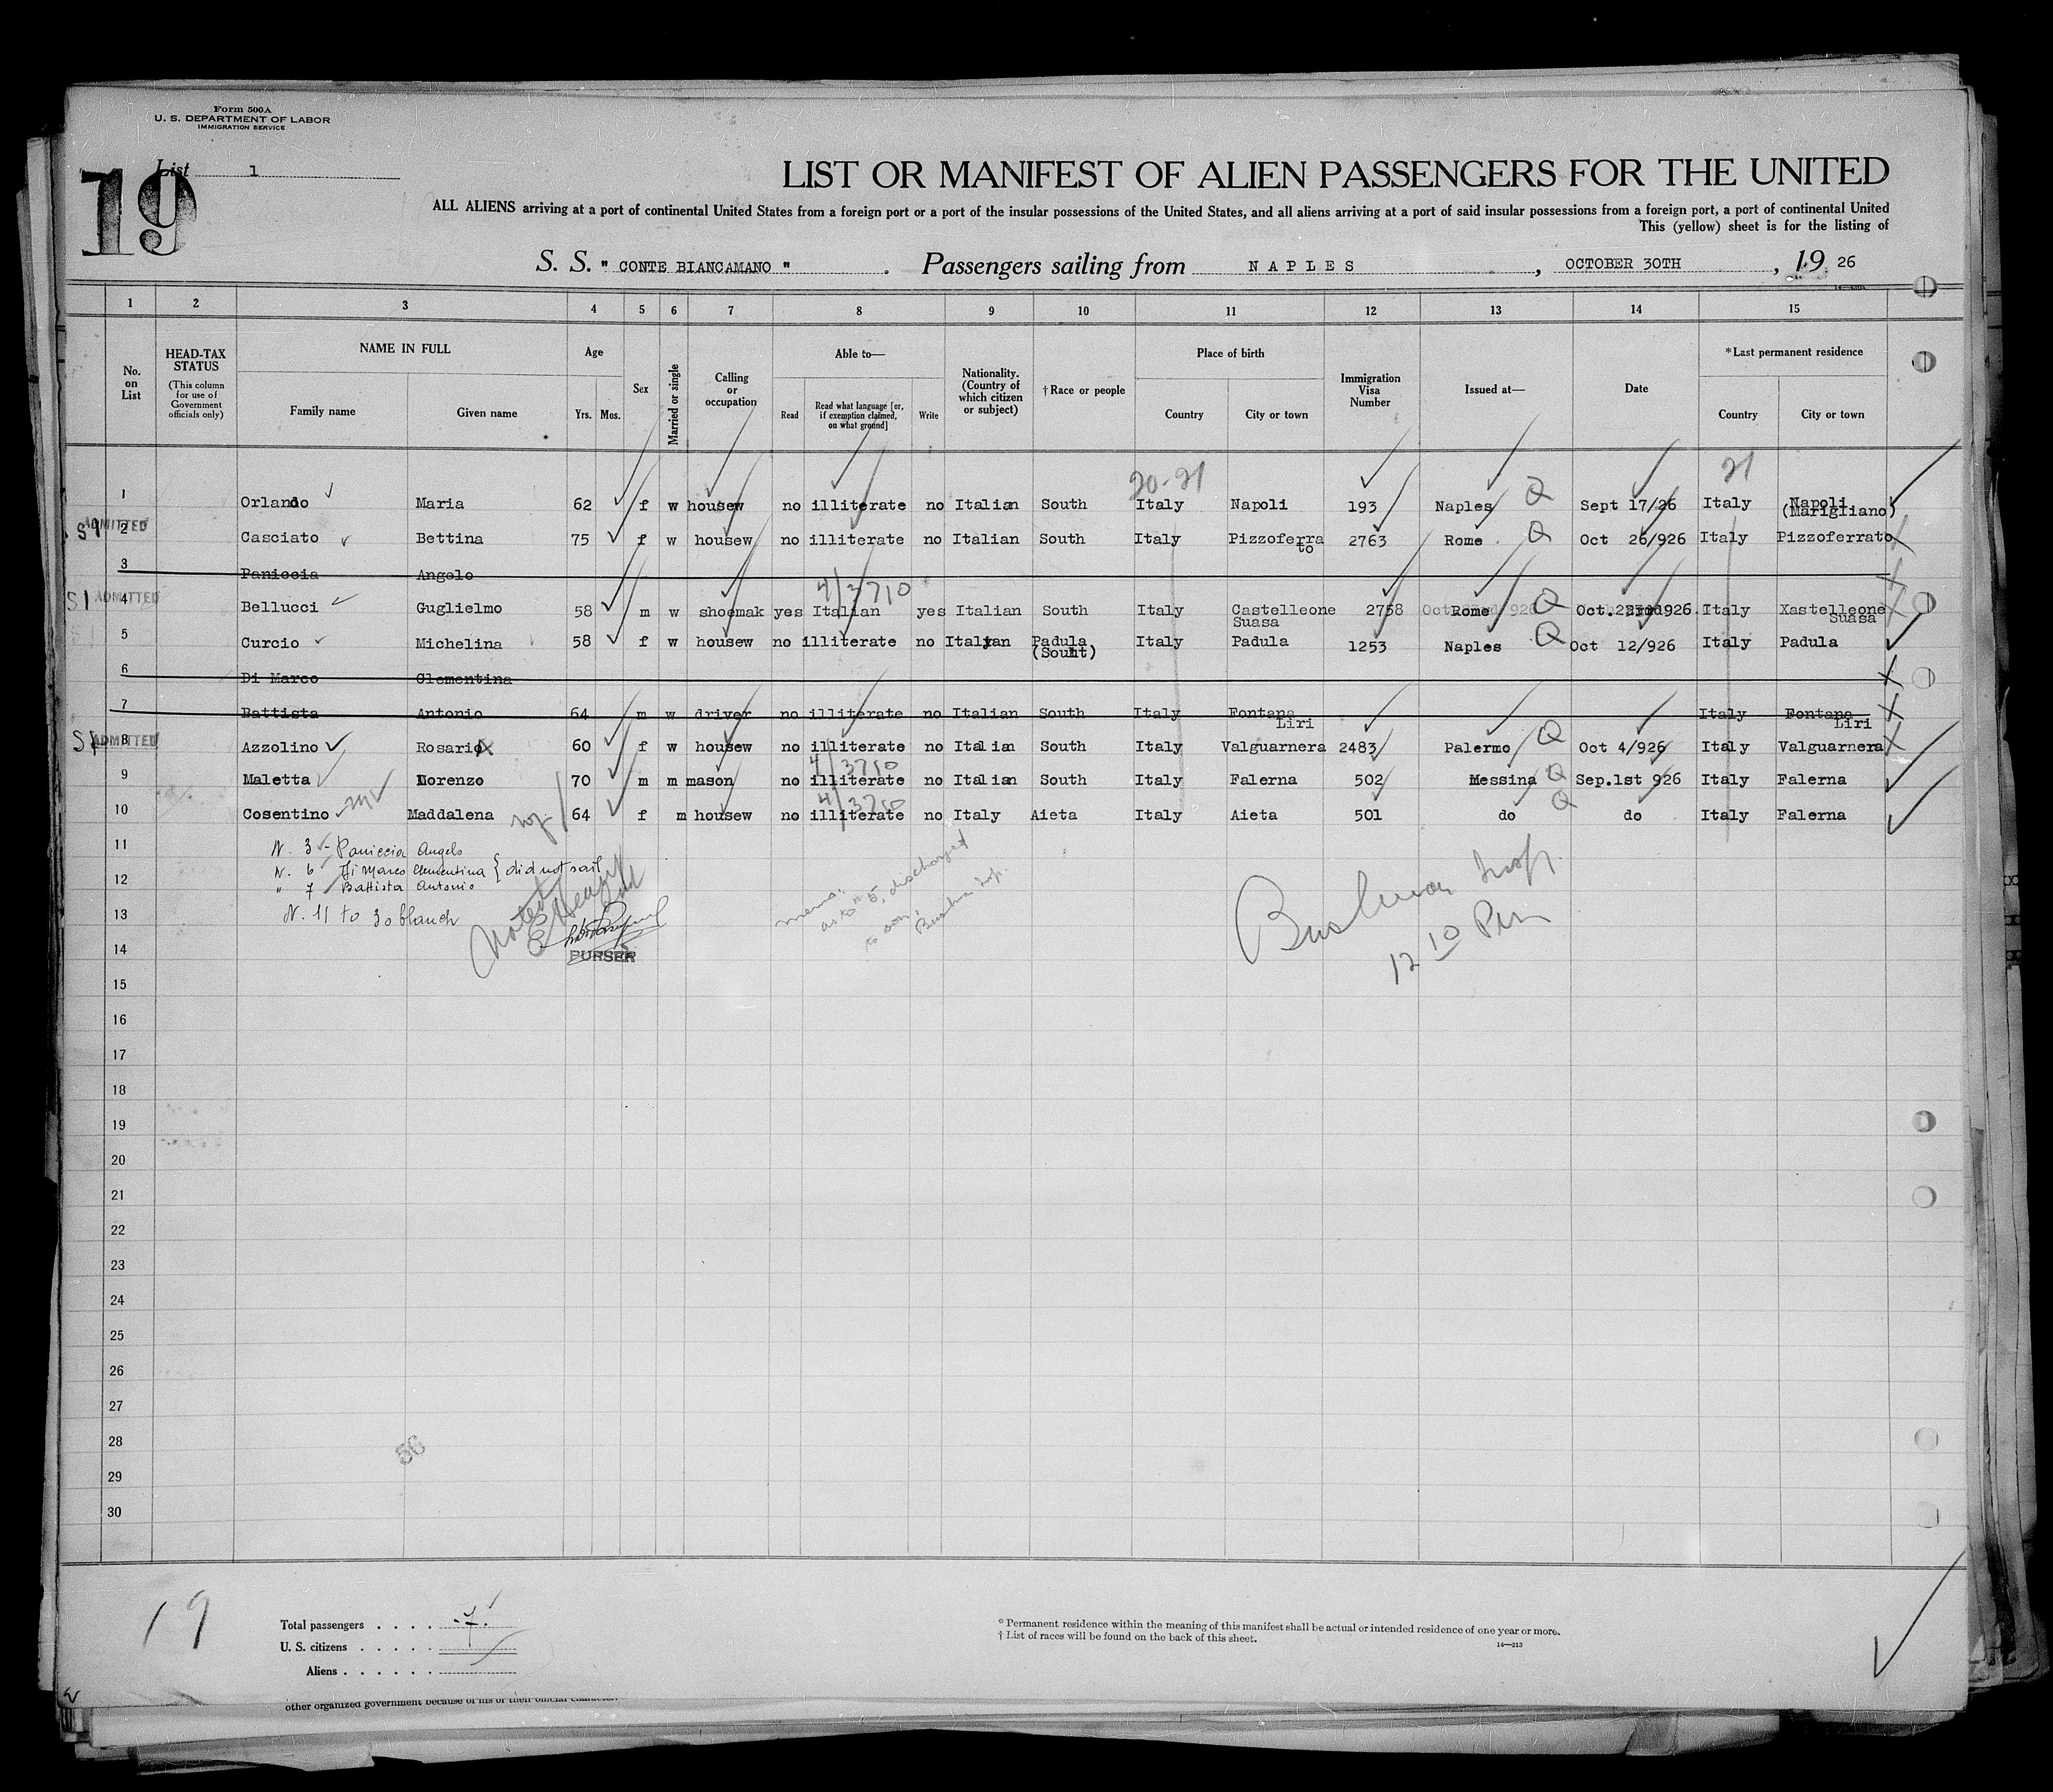 Form 500A
U. S. DEPARTMENT OF LABOR
IMMIGRATION SERVICE
List 1
19
LIST OR MANIFEST OF ALIEN PASSENGERS FOR THE UNITED
ALL ALIENS arriving at a port of continental United States from a foreign port or a port of the insular possessions of the United States, and all aliens arriving at a port of said insular possessions from a foreign port, a port of continental United
This (yellow) sheet is for the listing of
S. S. " CONTE BIANCAMANO " . Passengers sailing from NAPLES , OCTOBER 30TH , 19 26
1 2 3 4 5 6 7 8 9 10 11 12 13 14 15
No. on List
HEAD-TAX STATUS
(This column for use of Government officials only)
NAME IN FULL
Family name Given name
Age
Yrs. Mos.
Sex
Married or single
Calling or occupation
Able to—
Read
Read what language [or, if exemption claimed, on what ground]
Write
Nationality. (Country of which citizen or subject)
† Race or people
Place of birth
Country City or town
Immigration Visa Number
Issued at—
Date
* Last permanent residence
Country City or town
20-21 21
1 Orlando Maria 62 f w housew no illiterate no Italian South Italy Napoli 193 Naples Q Sept 17/26 Italy Napoli
(Marigliano)
ADMITTED
S1 2 Casciato Bettina 75 f w housew no illiterate no Italian South Italy Pizzoferra
to 2763 Rome Q Oct 26/926 Italy Pizzoferrato
3 Paniccia Angelo
4/3710
S1 ADMITTED 4 Bellucci Guglielmo 58 m w shoemak yes Italian yes Italian South Italy Castelleone
Suasa 2758 Rome Q Oct. 926 Italy Xastelleone
Suasa
5 Curcio Michelina 58 f w housew no illiterate no Italyan Padula
(Souht) Italy Padula 1253 Naples Q Oct 12/926 Italy Padula
6 Di Marco Clementina
7 Battista Antonio 64 m w driver no illiterate no Italian South Italy Fontana
Liri Italy Fontana
Liri
ADMITTED 8 Azzolino Rosario 60 f w housew no illiterate no Italian South Italy Valguarnera 2483 Palermo Q Oct 4/926 Italy Valguarnera
4/3710
9 Maletta Lorenzo 70 m m mason no illiterate no Italian South Italy Falerna 502 Messina Q Sep.1st 926 Italy Falerna
4/3710
10 Cosentino Maddalena 64 f m housew no illiterate no Italy Aieta Italy Aieta 501 do Q do Italy Falerna
11 N. 3 - Paniccia Angelo
N. 6 Di Marco Clementina { did not sail
12 " 7 Battista Antonio
13 N. 11 to 30 blanch
Noted
PURSER
memo:
as to # 5, discharged
to son,
Bushman Insp.
Bushman Insp.
12 10 Pm
14
15
16
17
18
19
20
21
22
23
24
25
26
27
28
29
30
56
19
Total passengers . . . . 7.
U. S. citizens . . . . .
Aliens . . . . . .
* Permanent residence within the meaning of this manifest shall be actual or intended residence of one year or more.
† List of races will be found on the back of this sheet.
14—213
other organized government because of his or their official character.